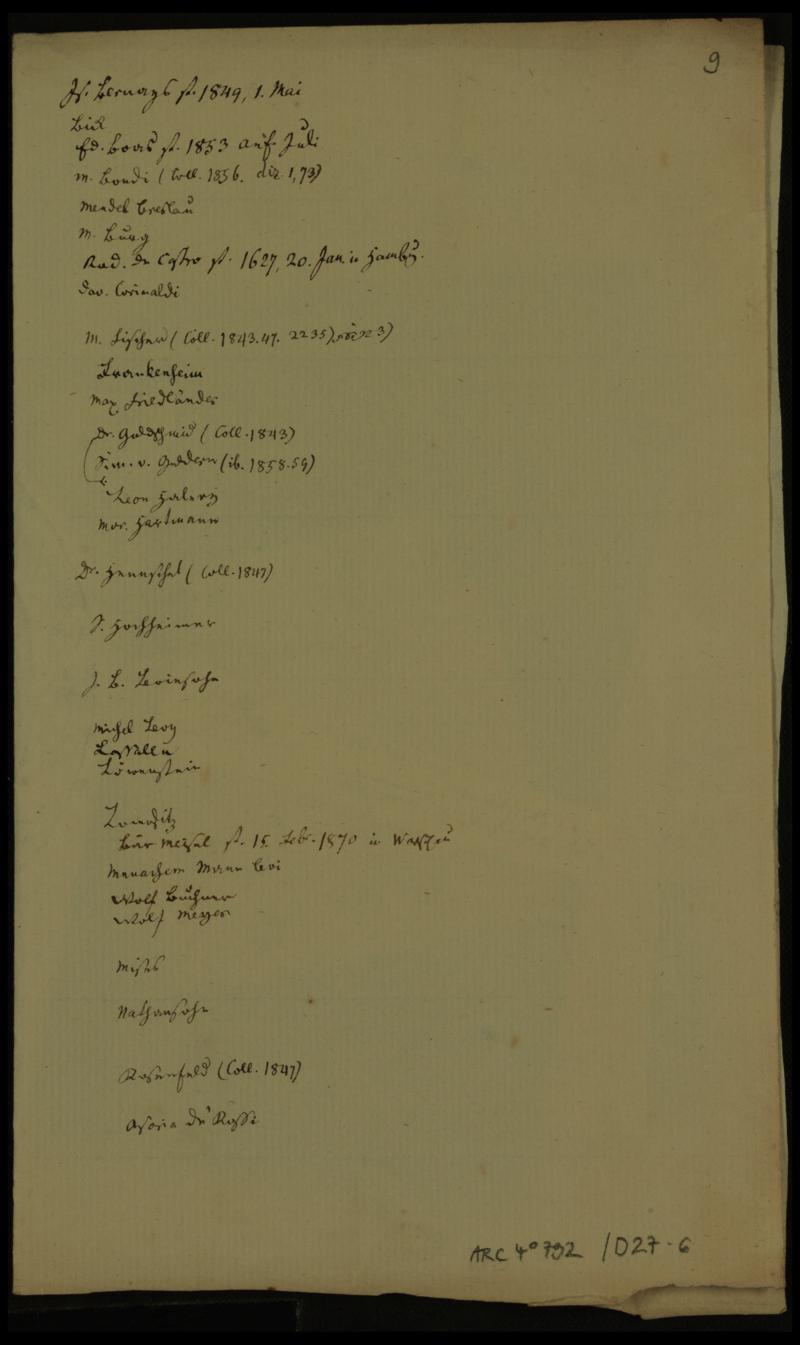 9
Is. Bernays st. 1849, 1. Mai
Bick
Ed. Boas st. 1853 Anf. Juli
M. Bondi (Coll. 1856. 1,73)
Mendel Breslau
M. Burg
Rod. de Castro st. 1627, 20. Jan. in Hamburg.
Dav. Corinaldi
M. Fischer (Coll. 1843.47. 2235)
Frankenheim
Max Friedländer
Dr. Goldschmid (Coll. 1843)
Sim. v. Geldern (ib. 1858.59)
Leon Halevy
Mor. Hartmann
Dr. Henschel (Coll. 1847)
S. Hochheimer
J. B. Levinsohn
Michel Levy
Löwenstein
Bär Meisel st. 15 Febr. 1870 in Warschau
Menachem Mann Levi
Wolf Buchner
Wolf Meyer
Mises
Nathansohn
Rosenfeld (Coll. 1847)
Asaria de Rossi
ARC 4° 792 /D27-6